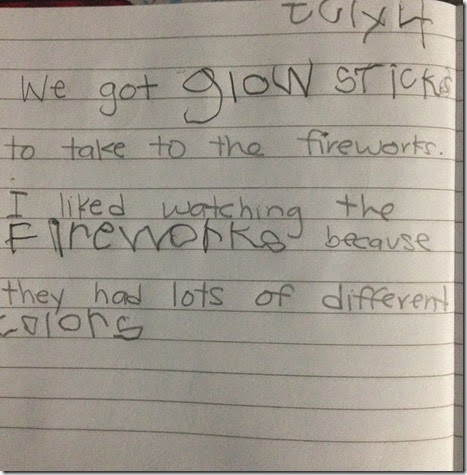 July 4
We got glow STicks
to take to the fireworks.
I liked watching the
FireWorks because
they had lots of different
colors